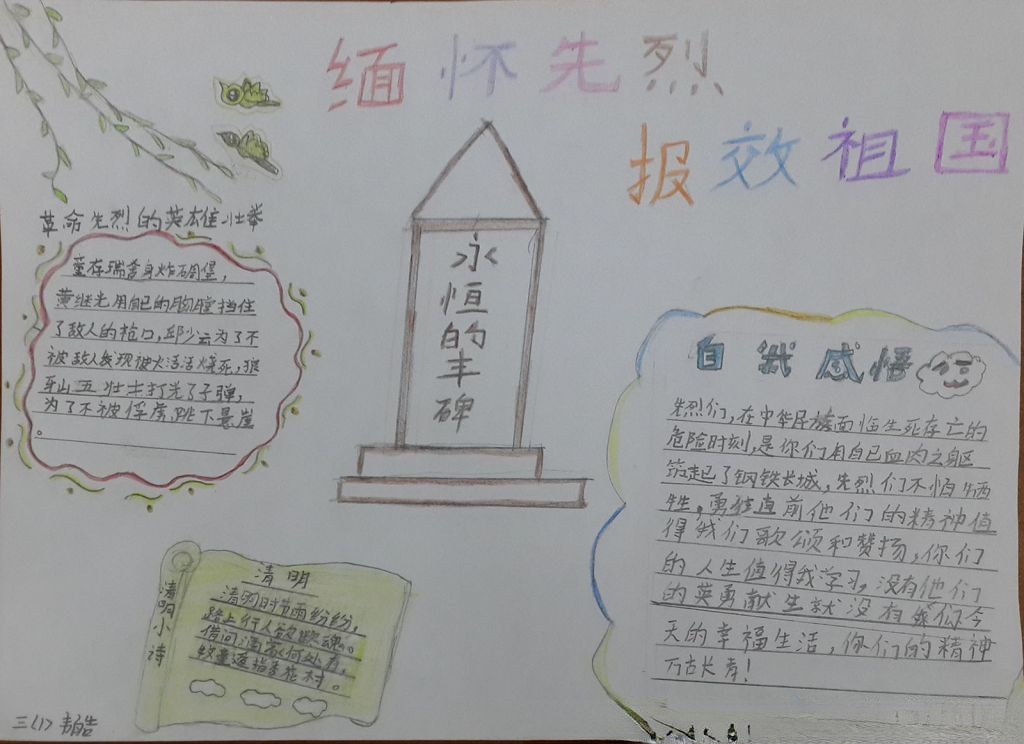 缅怀先烈
报效祖国
革命先烈的英雄壮举
董存瑞舍身炸碉堡，
黄继光用自己的胸膛挡住
了敌人的枪口，邱少云为了不
被敌人发现被大活活烧死，狼
牙山五壮士打光了子弹，
为了不被俘虏，跳下悬崖
。
永恒的丰碑
自我感悟
先烈们，在中华民族面临生死存亡的
危险时刻，是你们用自己血肉之躯
筑起了钢铁长城，先烈们不怕牺
牲。勇往直前他们的精神值
得我们歌颂和赞扬，你们
的人生值得我学习，没有他们
的英勇献生就没有我们今
天的幸福生活，你们的精神
万古长青！
清明小诗
清明
清明时节雨纷纷，
路上行人欲断魂。
借问酒家何处有，
牧童遥指杏花村。
三（1）韦皓